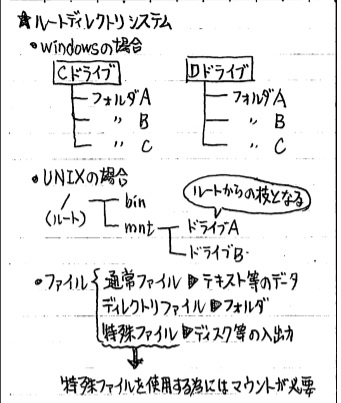 ★ルートディレクトリシステム
•windowsの場合
Cドライブ Dドライブ
フォルダA フォルダA
〃 B 〃 B
〃 C 〃 C
•UNIXの場合
ルートからの枝となる
/ bin
(ルート) mnt ドライブA
ドライブB
•ファイル 通常ファイル▶テキスト等のデータ
ディレクトリファイル▶フォルダ
特殊ファイル▶ディスク等の入出力
特殊ファイルを使用する為にはマウントが必要